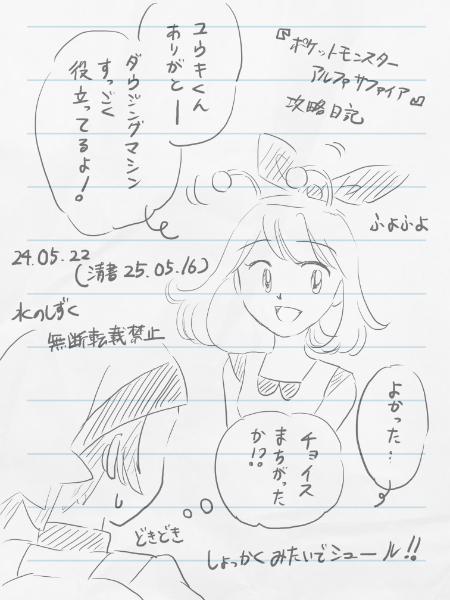 『ポケットモンスター
アルファサファイア』
攻略日記
ユウキくん
ありがとー
ダウジングマシン
すっごく
役立ってるよ!
ふよふよ
24.05.22
(清書25.05.16)
水のしずく
無断転載禁止
よかった…
チョイス
まちがった
か!?
どきどき
しょっかくみたいでシュール!!